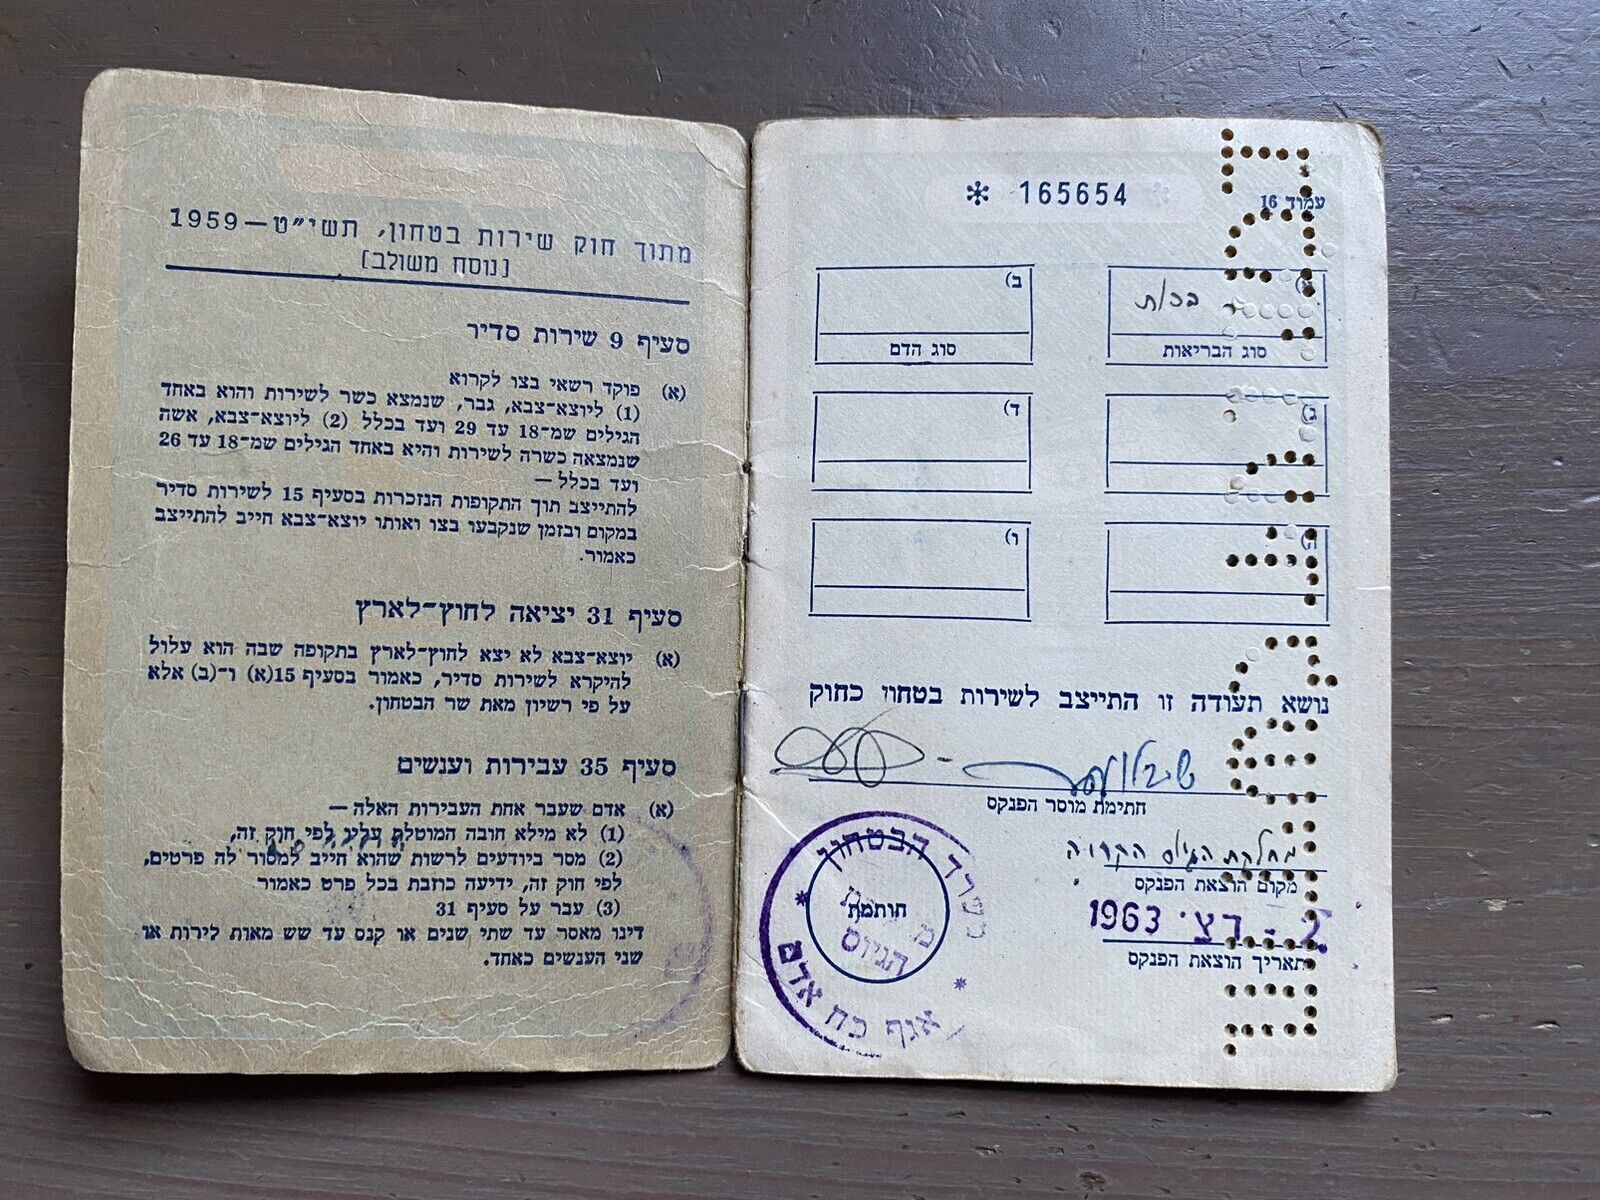 עמוד 16
* 165654 *
א)
בכ/ת
סוג הבריאות
ב)
סוג הדם
ג)
ד)
ה)
ו)
נושא תעודה זו התייצב לשירות בטחון כחוק
חתימת מוסר הפנקס
מחלקת הגיוס הקריה
מקום הוצאת הפנקס
דצ' 1963
תאריך הוצאת הפנקס
משרד הבטחון
חותמת
הגיוס
אגף כח אדם
מתוך חוק שירות בטחון, תשי״ט—1959
[נוסח משולב]
סעיף 9 שירות סדיר
(א) פוקד רשאי בצו לקרוא
(1) ליוצא־צבא, גבר, שנמצא כשר לשירות והוא באחד
הגילים שמ־18 עד 29 ועד בכלל (2) ליוצא־צבא, אשה
שנמצאה כשרה לשירות והיא באחד הגילים שמ־18 עד 26
ועד בכלל —
להתייצב תוך התקופות הנזכרות בסעיף 15 לשירות סדיר
במקום ובזמן שנקבעו בצו ואותו יוצא־צבא חייב להתייצב
כאמור.
סעיף 31 יציאה לחוץ־לארץ
(א) יוצא־צבא לא יצא לחוץ־לארץ בתקופה שבה הוא עלול
להיקרא לשירות סדיר, כאמור בסעיף 15(א) ו־(ב) אלא
על פי רשיון מאת שר הבטחון.
סעיף 35 עבירות וענשים
(א) אדם שעבר אחת העבירות האלה —
(1) לא מילא חובה המוטלת עליו לפי חוק זה,
(2) מסר ביודעים לרשות שהוא חייב למסור לה פרטים,
לפי חוק זה, ידיעה כוזבת בכל פרט כאמור
(3) עבר על סעיף 31
דינו מאסר עד שתי שנים או קנס עד שש מאות לירות או
שני הענשים כאחד.